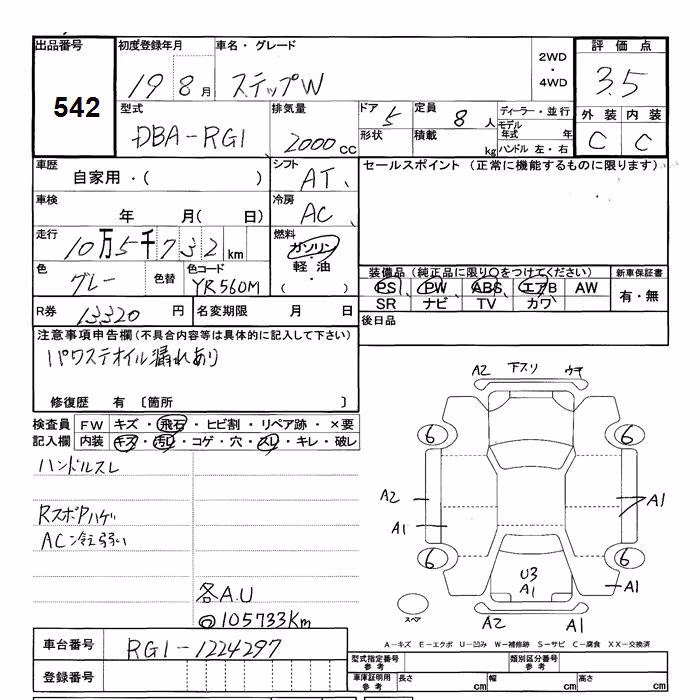 出品番号 初度登録年月 車名・グレード 2WD・4WD 評価点
542 19 8月 ステップW 3.5
型式 排気量 ドア 5 定員 8人 ディーラー・並行 外装 内装
DBA-RG1 2000cc 形状 積載 kg モデル年式 年 ハンドル 左・右 C C
車歴 シフト セールスポイント (正常に機能するものに限ります)
自家用・( ) AT
車検 冷房
年 月( 日) AC
走行 10万5千732km 燃料 ガソリン・軽油・( )
色 グレー 色替 色コード YR560M
装備品 (純正品に限り○をつけてください) 新車保証書
PS PW ABS エアB AW 有・無
SR ナビ TV カワ
R券 13320円 名変期限 月 日 後日品
注意事項申告欄(不具合内容等は具体的に記入して下さい)
パワステオイル漏れあり
修復歴 有 〔箇所 〕
検査員記入欄 FW キズ・飛石・ヒビ割・リペア跡・×要
内装 キズ・汚レ・コゲ・穴・スレ・キレ・破レ
ハンドルスレ
RスポPハゲ
AC冷え弱い
各A.U
◎105733Km
A2 下スリ ウキ
6 6
A2 A1
A1
6 6
U3
A1 A1
スペア A2 A1
A-キズ E-エクボ U-凹み W-補修跡 S-サビ C-腐食 XX-交換済
車台番号 RG1-1224297
型式指定番号 参考 類別区分番号 参考
登録番号 車庫証明用 参考 長さ cm 幅 cm 高さ cm